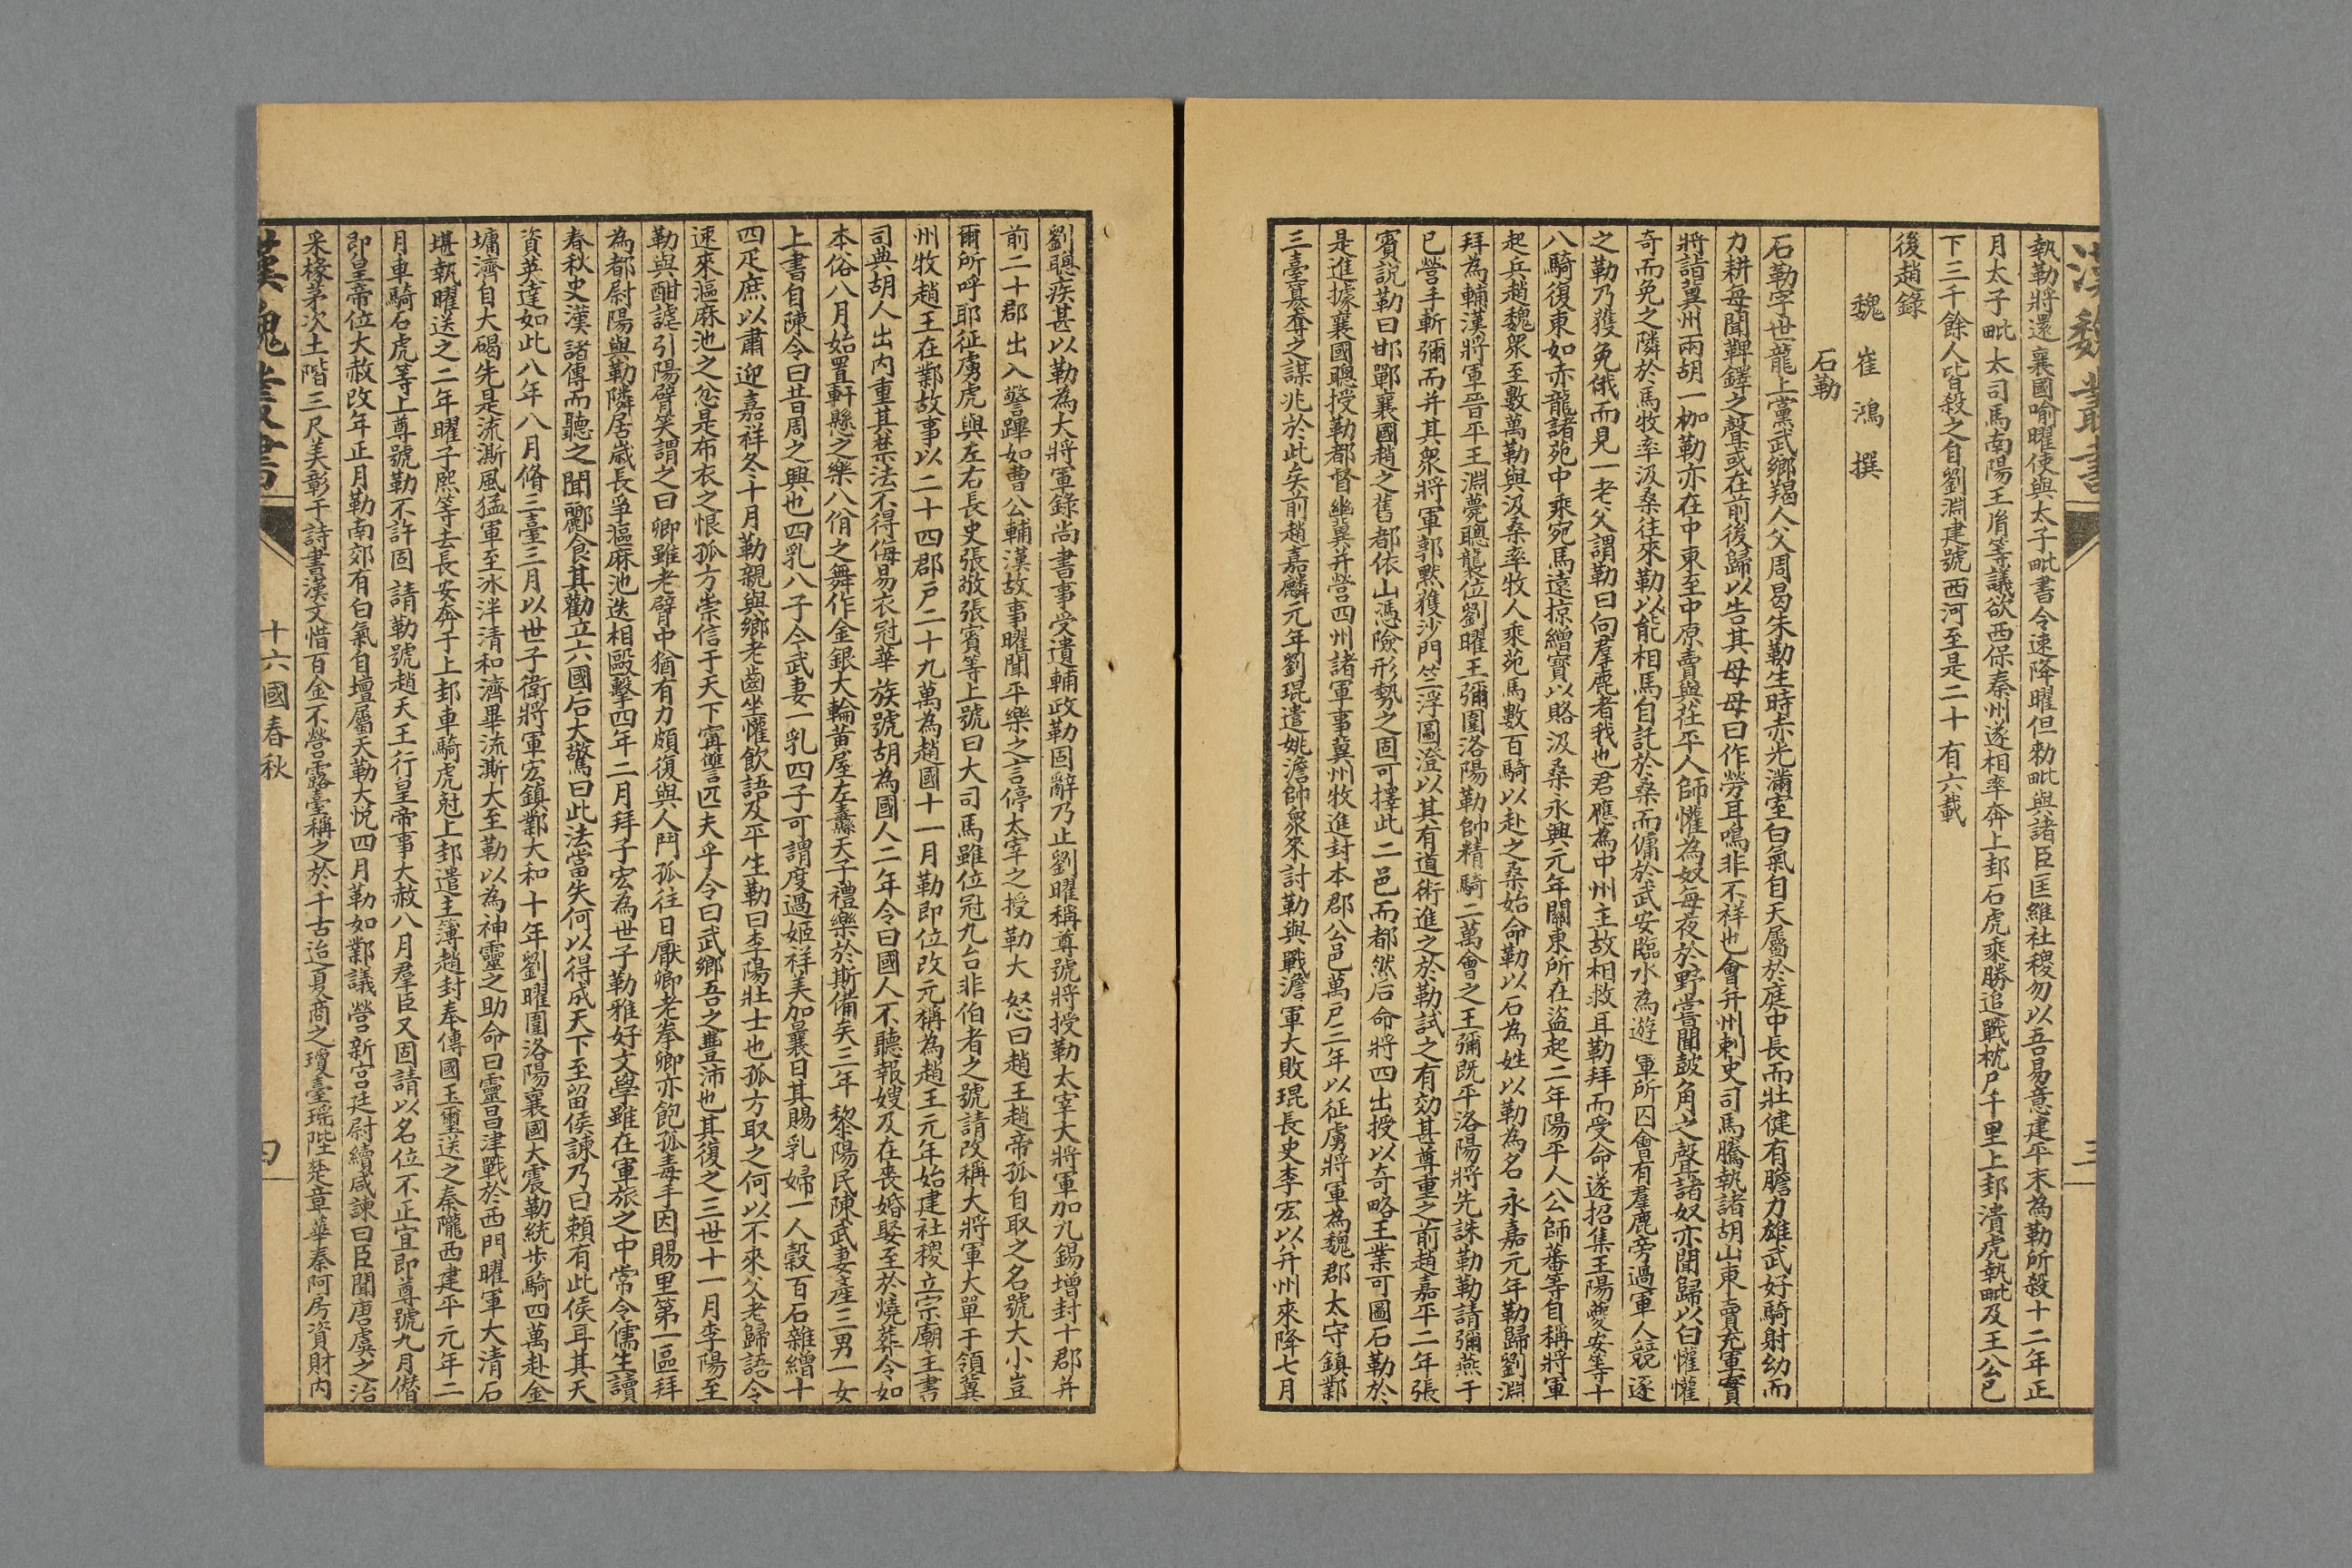 漢魏叢書
三
執勒將還襄國喻曜使與太子毗書令速降曜但勑毗與諸臣匡維社稷勿以吾易意建平末為勒所殺十二年正
月太子毗太司馬南陽王胥等議欲西保秦州遂相率奔上邽石虎乘勝追戰枕尸千里上邽潰虎執毗及王公已
下三千餘人皆殺之自劉淵建號西河至是二十有六載
後趙錄
魏崔鴻撰
石勒
石勒字世龍上黨武鄉羯人父周曷朱勒生時赤光滿室白氣自天屬於庭中長而壯健有膽力雄武好騎射幼而
力耕每聞鞞鐸之聲或在前後歸以告其母母曰作勞耳鳴非不祥也會并州剌史司馬騰執諸胡山東賣充軍實
將詣冀州兩胡一枷勒亦在中東至中原賣與茌平人師懽為奴每夜於野嘗聞鼓角之聲諸奴亦聞歸以白懽懽
奇而免之隣於馬牧率汲桑往來勒以能相馬自託於桑而傭於武安臨水為遊軍所囚會有羣鹿旁過軍人競逐
之勒乃獲免俄而見一老父謂勒曰向羣鹿者我也君應為中州主故相救耳勒拜而受命遂招集王陽夔安等十
八騎復東如赤龍諸苑中乘宛馬遠掠繒寶以賂汲桑永興元年關東所在盜起二年陽平人公師蕃等自稱將軍
起兵趙魏眾至數萬勒與汲桑率牧人乘苑馬數百騎以赴之桑始命勒以石為姓以勒為名永嘉元年勒歸劉淵
拜為輔漢將軍晉平王淵薨聰襲位劉曜王彌圍洛陽勒帥精騎二萬會之王彌既平洛陽將先誅勒勒請彌燕于
已營手斬彌而并其衆將軍郭黙獲沙門竺浮圖澄以其有道術進之於勒試之有効甚尊重之前趙嘉平二年張
賓說勒曰邯鄲襄國趙之舊都依山憑險形勢之固可擇此二邑而都然后命將四出授以奇略王業可圖石勒於
是進據襄國聰授勒都督幽冀并營四州諸軍事冀州牧進封本郡公邑萬戶三年以征虜將軍為魏郡太守鎮鄴
三臺簒奪之謀兆於此矣前趙嘉麟元年劉琨遣姚澹帥衆來討勒與戰澹軍大敗琨長史李宏以并州來降七月
劉聰疾甚以勒為大將軍錄尚書事受遺輔政勒固辭乃止劉曜稱尊號將授勒太宰大將軍加九錫增封十郡并
前二十郡出入警蹕如曹公輔漢故事曜聞平樂之言停太宰之授勒大怒曰趙王趙帝孤自取之名號大小豈
爾所呼耶征虜虎與左右長史張敬張賓等上號曰大司馬雖位冠九台非伯者之號請改稱大將軍大單于領冀
州牧趙王在鄴故事以二十四郡戶二十九萬為趙國十一月勒即位改元稱為趙王元年始建社稷立宗廟主書
司典胡人出內重其禁法不得侮易衣冠華族號胡為國人二年令曰國人不聽報嫂及在喪婚娶至於燒葬令如
本俗八月始置軒懸之樂八佾之舞作金銀大輪黃屋左纛天子禮樂於斯備矣三年黎陽民陳武妻產三男一女
上書自陳令曰昔周之興也四乳八子今武妻一乳四子可謂度過姬祥美加曩日其賜乳婦一人穀百石雜繒十
四疋庶以肅迎嘉祥冬十月勒親與鄉老齒坐懽飲語及平生勒曰李陽壯士也孤方取之何以不來父老歸語令
速來漚麻池之忿是布衣之恨孤方崇信于天下甯讐匹夫乎令曰武鄉吾之豐沛也其復之三世十一月李陽至
勒與酣謔引陽臂笑謂之曰卿雖老臂中猶有力頗復與人鬥孤往日厭卿老拳卿亦飽孤毒手因賜里第一區拜
為都尉陽與勒隣居歲長爭漚麻池迭相毆擊四年二月拜子宏為世子勒雅好文學雖在軍旅之中常令儒生讀
春秋史漢諸傳而聽之聞酈食其勸立六國后大驚曰此法當失何以得成天下至留侯諫乃曰賴有此侯耳其天
資英達如此八年八月脩三臺三月以世子衛將軍宏鎮鄴大和十年劉曜圍洛陽襄國大震勒統步騎四萬赴金
墉濟自大碣先是流澌風猛軍至冰泮清和濟畢流澌大至勒以為神靈之助命曰靈昌津戰於西門曜軍大清石
堪執曜送之二年曜子熙等去長安奔于上邽車騎虎尅上邽遣主簿趙封奉傳國玉璽送之秦隴西建平元年二
月車騎石虎等上尊號勒不許固請勒號趙天王行皇帝事大赦八月羣臣又固請以名位不正宜即尊號九月僭
即皇帝位大赦改年正月勒南郊有白氣自壇屬天勒大悅四月勒如鄴議營新宮廷尉續咸諫曰臣聞唐虞之治
采椽茅次土階三尺美彰于詩書漢文惜百金不營露臺稱之於千古迨夏商之瓊臺瑤陛楚章華秦阿房資財內
漢魏叢書
十六國春秋
四